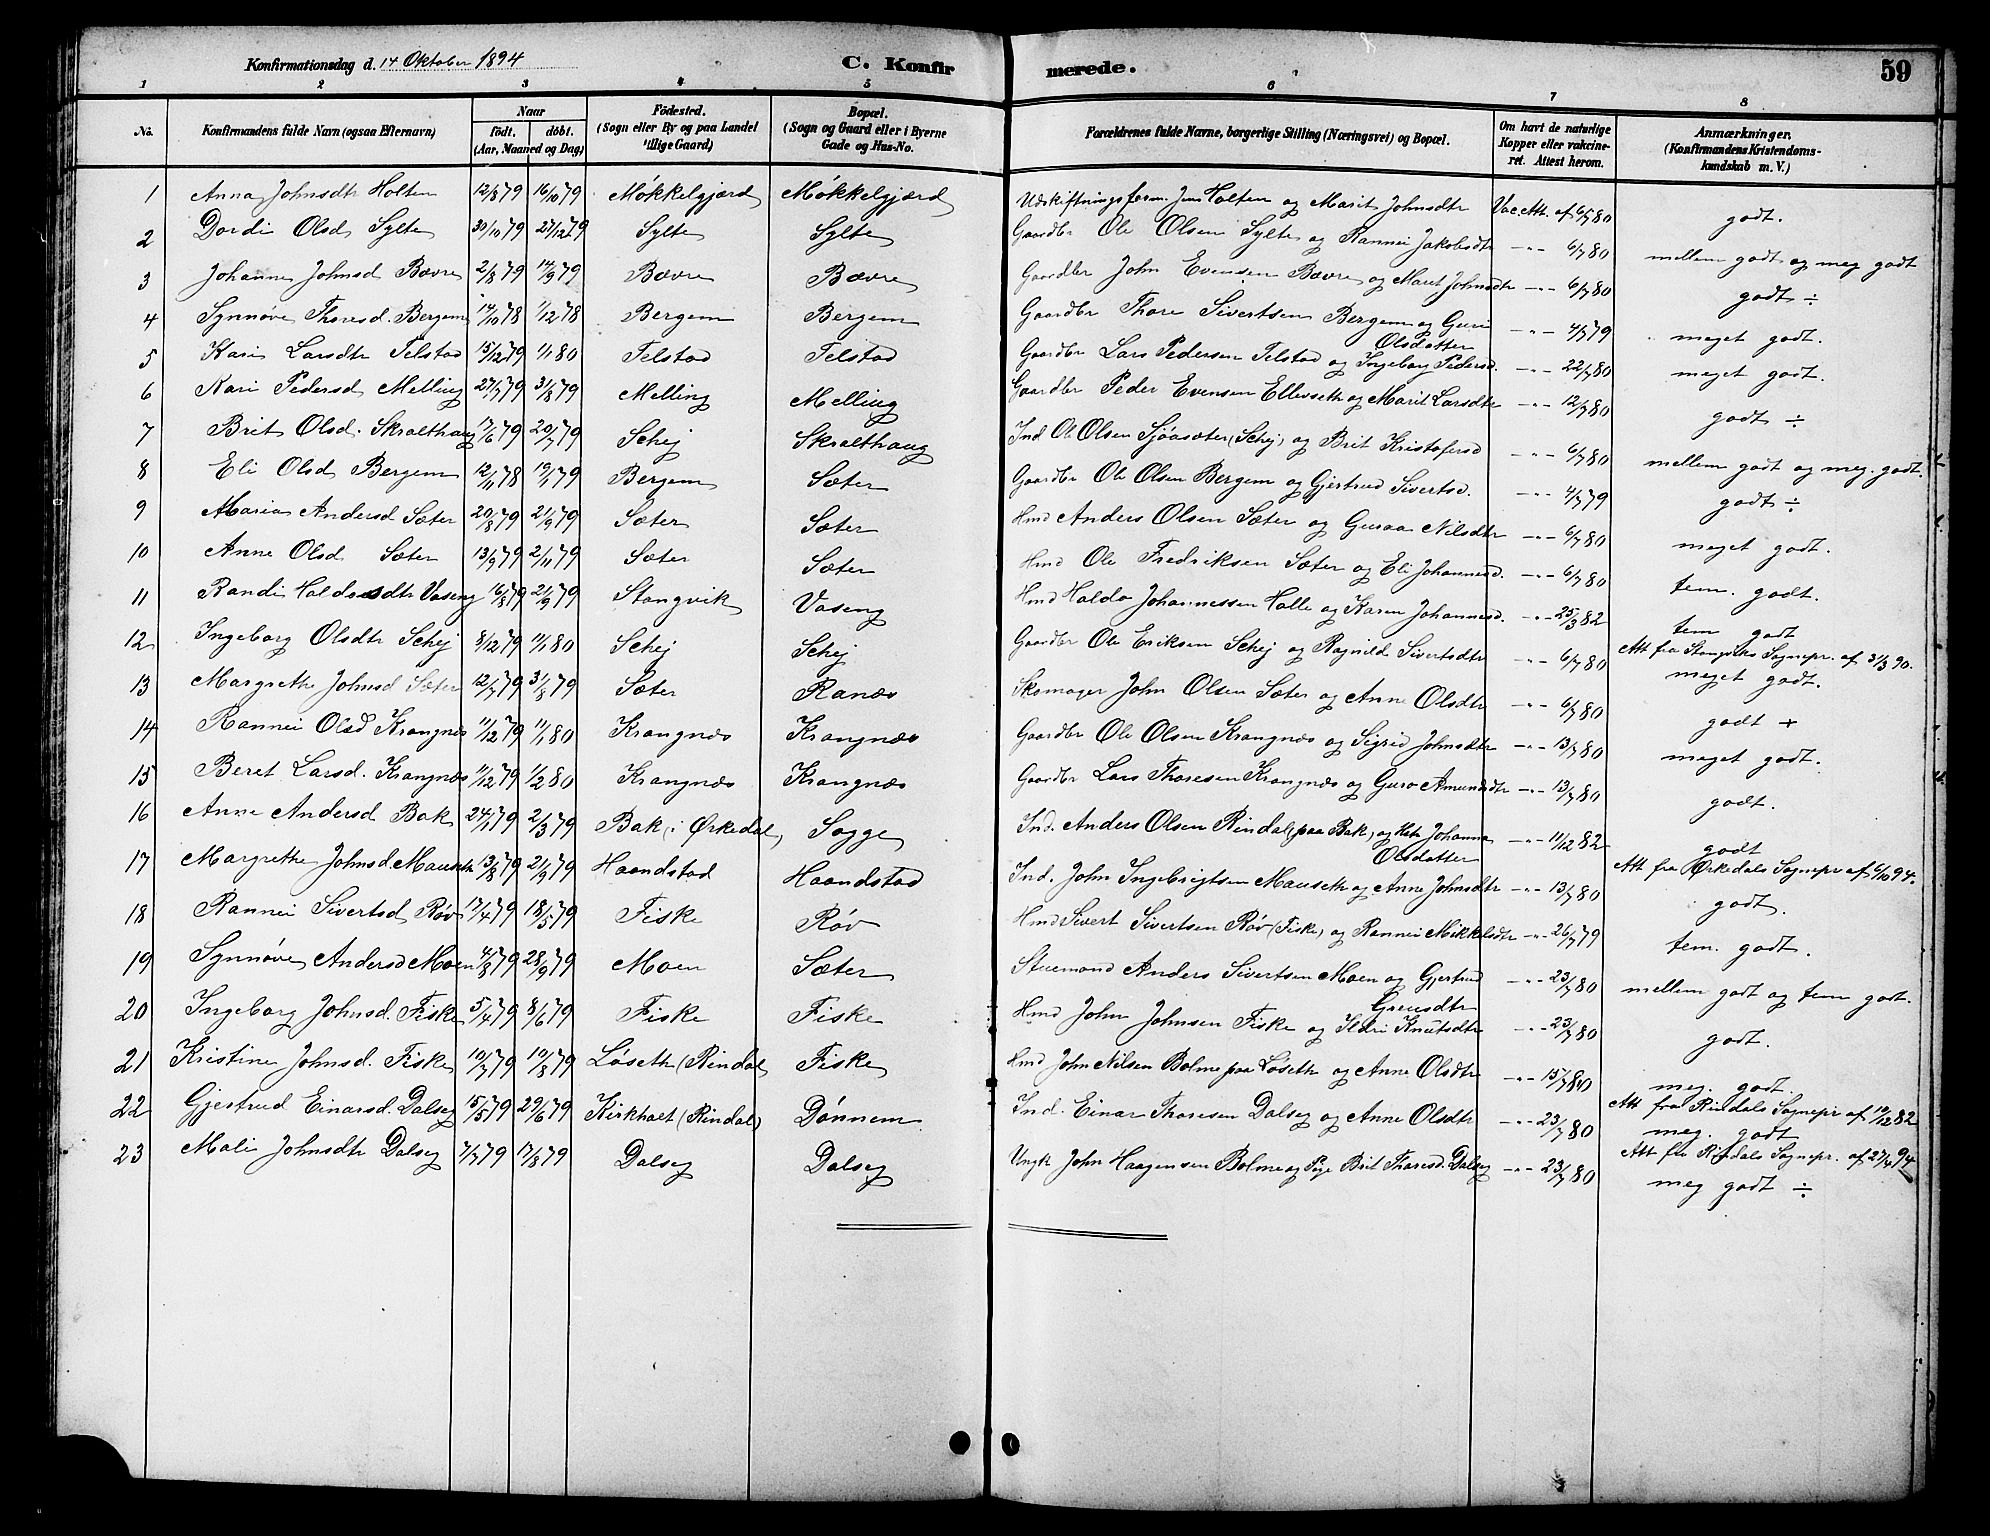 Konfirmationsdag d. 14 Oktober 1894
C. Konfir merede.
59
1 2 3 4 5 6 7 8
No. Konfirmandens fulde Navn (ogsaa Efternavn) Naar født. døbt. (Aar, Maaned og Dag) Fødested. (Sogn eller By og paa Landet tillige Gaard) Bopæl. (Sogn og Gaard eller i Byerne Gade og Hus-No. Forældrenes fulde Navne, borgerlige Stilling (Næringsvei) og Bopæl. Om havt de naturlige Kopper eller vakcineret. Attest herom. Anmærkninger. (Konfirmandens Kristendomskundskab m. V.)
1 Anna Johnsdtr Holten 12/8 79 16/10 79 Møkkelgjærd Møkkelgjærd Udskiftningsform. Jens Holten og Marit Johnsdtr Vac. Att. af 6/7 80 godt.
2 Dordi Olsd Sylte 30/10 79 27/12 79 Sylte Sylte Gaardbr Ole Olsen Sylte og Rannei Jakobsdtr -"- 6/7 80 mellem godt og meg godt
3 Johanne Johnsd Bævre 2/8 79 14/9 79 Bævre Bævre Gaardbr John Evensen Bævre og Marit Johnsdtr -"- 6/7 80 godt ÷
4 Synnøve Thoresd. Bergem 14/10 78 1/12 78 Bergem Bergem Gaardbr Thore Sivertsen Bergem og Guri Olsdatter -"- 4/7 79 meget godt.
5 Kari Larsdtr Telstad 15/12 79 1/1 80 Telstad Telstad Gaardbr Lars Pedersen Telstad og Ingeborg Pedersd. -"- 22/7 80 meget godt.
6 Kari Pedersd Melling 27/7 79 31/8 79 Melling Melling Gaardbr Peder Evensen Ellevseth og Marit Larsdtr -"- 12/7 80 godt ÷
7 Brit Olsd. Skralthaug 17/6 79 20/7 79 Schej Skralthaug Ind Ole Olsen Sjøasæter (Schej) og Brit Kristofersd -"- 6/7 80 mellem godt og meg. godt.
8 Eli Olsd Bergem 12/11 78 19/1 79 Bergem Sæter Gaardbr Ole Olsen Bergem og Gjertrud Sivertsd. -"- 4/7 79 godt ÷
9 Maria Andersd Sæter 20/8 79 21/9 79 Sæter Sæter Hmd Anders Olsen Sæter og Guraa Nilsdtr -"- 6/7 80 meget godt.
10 Anne Olsd Sæter 13/9 79 2/11 79 Sæter Sæter Hmd Ole Fredriksen Sæter og Eli Johannesd. -"- 6/7 80 tem. godt.
11 Randi Haldosdtr Vaseng 16/8 79 21/9 79 Stangvik Vaseng Hmd Haldo Johannessen Halle og Karen Johannesd. -"- 25/3 82 tem godt
Att fra Stangviks Sognepr. af 31/3 90.
12 Ingeborg Olsdtr Schej 8/12 79 11/1 80 Schej Schej Gaardbr Ole Eriksen Schej og Ragnild Sivertsdtr -"- 6/7 80 meget godt.
13 Margrethe Johnsd Sæter 12/7 79 31/8 79 Sæter Ranæs Skomager John Olsen Sæter og Anne Olsdtr -"- 6/7 80 godt +
14 Rannei Olsd Krangnæs 11/12 79 11/1 80 Krangnæs Krangnæs Gaardbr Ole Olsen Krangnæs og Sigrid Johnsdtr -"- 13/7 80 meget godt.
15 Beret Larsd. Krangnæs 11/12 79 1/2 80 Krangnæs Krangnæs Gaardbr Lars Thoresen Krangnæs og Guro Amundsdtr -"- 13/7 80 godt.
16 Anne Andersd Bak 24/1 79 2/3 79 Bak (i Ørkedal) Sogge Ind. Anders Olsen Rindal (paa Bak) og Johanna Olsdatter -"- 11/12 82 godt
Att fra Ørkedals Sognepr af 6/10 94.
17 Margrethe Johnsd. Mauseth 13/8 79 21/9 79 Haandstad Haandstad Ind. John Ingebrigtsen Mauseth og Anne Johnsdtr -"- 13/7 80 godt.
18 Rannei Sivertsd Røv 17/4 79 18/5 79 Fiske Røv Hmd Sivert Sivertsen Røv (Fiske) og Rannei Mikkelsdtr -"- 26/7 79 tem. godt.
19 Synnøve Andersd Moen 4/8 79 28/9 79 Moen Sæter Stuemand Anders Sivertsen Moen og Gjertrud -"- 23/7 80 mellem godt og tem godt.
20 Ingeborg Johnsd. Fiske 5/4 79 8/6 79 Fiske Fiske Hmd John Johnsen Fiske og Ildri Knutsdtr -"- 23/7 80 godt.
21 Kristine Johnsd. Fiske 10/7 79 10/8 79 Løseth (Rindal) Fiske Hmd John Nilsen Bolme paa Løseth og Anne Olsdtr -"- 15/7 80 meg. godt
Att fra Rindals Sognepr af 14/12 82
22 Gjertrud Einarsd. Dalseg 15/5 79 29/6 79 Kirkholt (Rindal) Dønnem Ind. Einar Thoresen Dalseg og Anne Olsdtr -"- 23/7 80 meg. godt
Att fra Rindals Sognepr. af 27/4 94
23 Mali Johnsdtr Dalseg 7/7 79 17/8 79 Dalseg Dalseg Ungk John Haagensen Bolme og Pige Brit Thoresd. Dalseg -"- 23/7 80 meg godt ÷